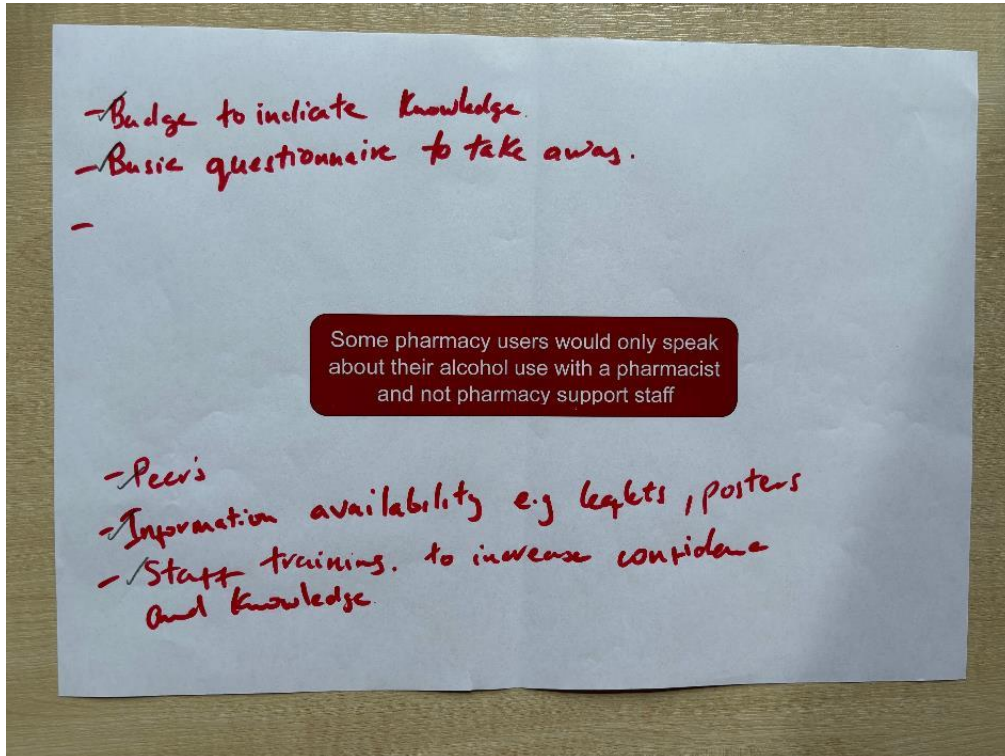 - Badge to indicate Knowledge.
- Basic questionnaire to take away.
-
Some pharmacy users would only speak
about their alcohol use with a pharmacist
and not pharmacy support staff
- Peer's
- Information availability e.g leaflets, posters
- Staff training. to increase confidence
and Knowledge.